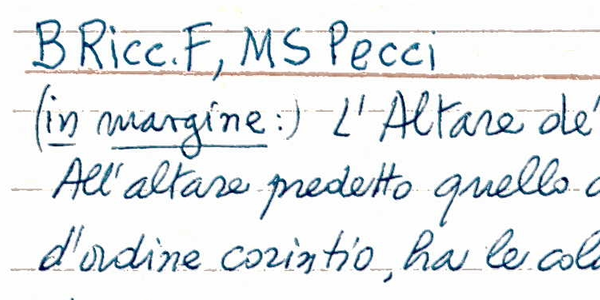 B Ricc. F, MS Pecci
(in margine:) L'Altare de'
All'altare predetto quello
d'ordine corintio, ha le